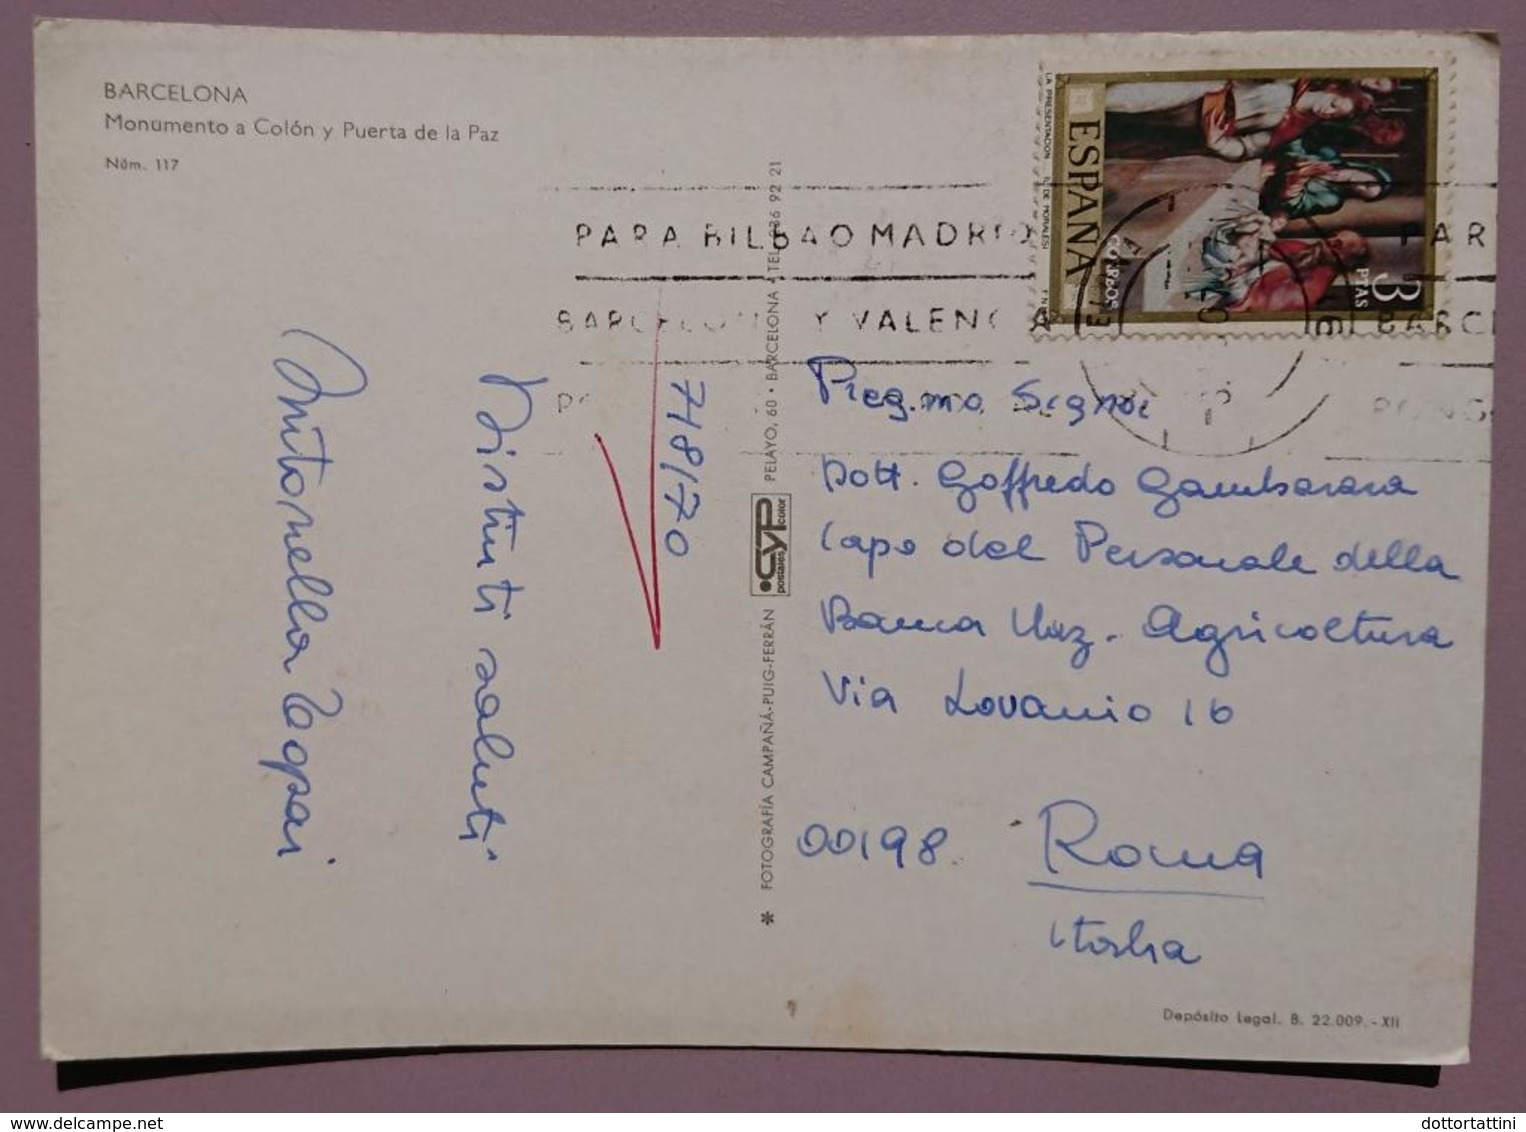 BARCELONA
Monumento a Colón y Puerta de la Paz
Núm. 117
7/8/70
Distinti saluti
Antonella
✻ FOTOGRAFÍA CAMPAÑÁ-PUIG-FERRÁN
CYP
postales color
PELAYO, 60 • BARCELONA - TEL. 36 92 21
PARA BILBAO MADRID
BARCELONA Y VALENCIA
PAR
BARC
LA PRESENTACION (L. DE MORALES)
ESPAÑA
CORREOS
3
PTAS
Preg.mo Signor
Dott. Goffredo Gambarara
Capo del Personale della
Banca Naz. Agricoltura
Via Lovanio 16
00198 Roma
Italia
Depósito Legal. B. 22.009.-XII
delcampe.net
dottortattini